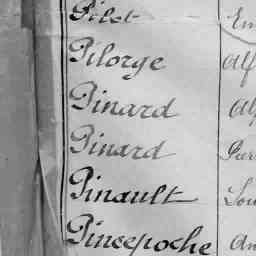 Pilot
Pilorge Alf
Pinard Alf
Pinard Pierr
Pinault Lou
Pincepoche An